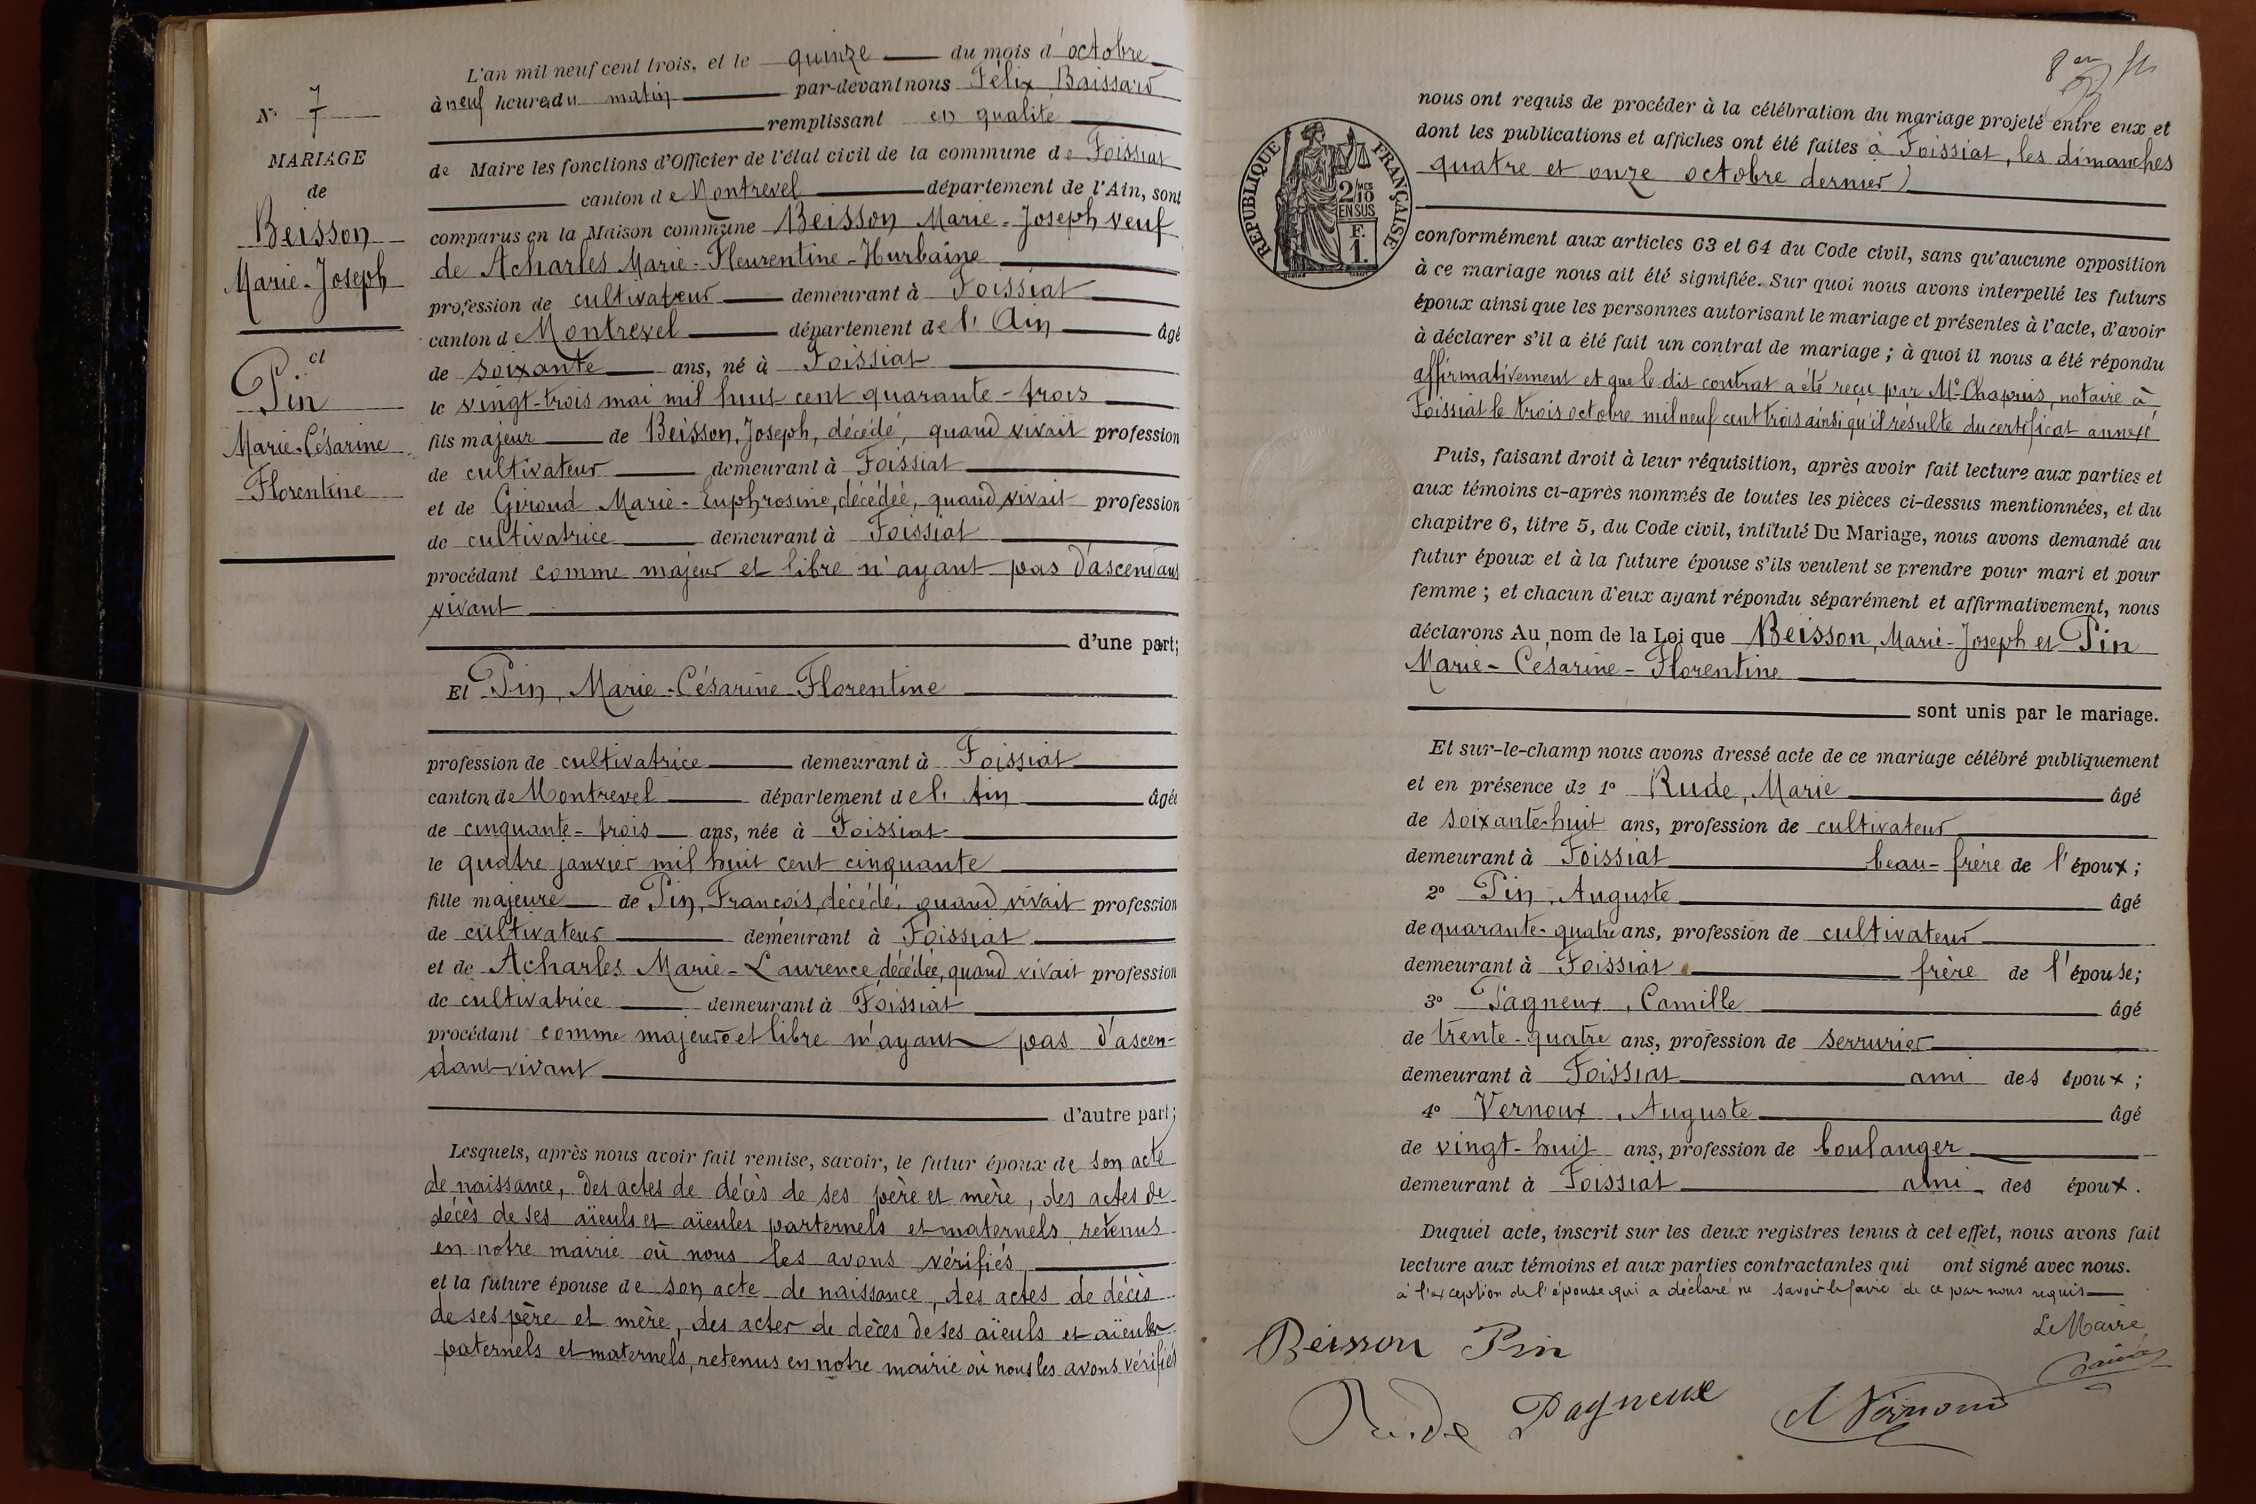 N° 7
MARIAGE
de
Beisson
Marie-Joseph
et
Pin
Marie-Césarine
Florentine
L'an mil neuf cent trois, et le quinze du mois d'octobre
à neuf heures du matin par-devant nous Félix Baissard
remplissant en qualité
de Maire les fonctions d'Officier de l'état civil de la commune de Foissiat
canton de Montrevel département de l'Ain, sont
comparus en la Maison commune Beisson Marie-Joseph veuf
de Acharles Marie-Fleurentine-Hurbaine
profession de cultivateur demeurant à Foissiat
canton de Montrevel département de l'Ain âgé
de soixante ans, né à Foissiat
le vingt-trois mai mil huit cent quarante-trois
fils majeur de Beisson, Joseph, décédé, quand vivait profession
de cultivateur demeurant à Foissiat
et de Giroud Marie-Euphrosine, décédée, quand vivait profession
de cultivatrice demeurant à Foissiat
procédant comme majeur et libre n'ayant pas d'ascendant
vivant
d'une part;
Et Pin, Marie-Césarine-Florentine
profession de cultivatrice demeurant à Foissiat
canton de Montrevel département de l'Ain âgée
de cinquante-trois ans, née à Foissiat
le quatre janvier mil huit cent cinquante
fille majeure de Pin, François, décédé, quand vivait profession
de cultivateur demeurant à Foissiat
et de Acharles Marie-Laurence décédée, quand vivait profession
de cultivatrice demeurant à Foissiat
procédant comme majeure et libre n'ayant pas d'ascen-
dant vivant
d'autre part;
Lesquels, après nous avoir fait remise, savoir, le futur époux de son acte
de naissance, des actes de décès de ses père et mère, des actes de
décès de ses aïeuls et aïeules parternels et maternels, retenus
en notre mairie où nous les avons vérifiés
et la future épouse de son acte de naissance, des actes de décès
de ses père et mère, des actes de décès de ses aïeuls et aïeules
paternels et maternels, retenus en notre mairie où nous les avons vérifiés
8en
RÉPUBLIQUE FRANÇAISE
2/10 MES
EN SUS
F.
1.
nous ont requis de procéder à la célébration du mariage projeté entre eux et
dont les publications et affiches ont été faites à Foissiat, les dimanches
quatre et onze octobre dernier
conformément aux articles 63 et 64 du Code civil, sans qu'aucune opposition
à ce mariage nous ait été signifiée. Sur quoi nous avons interpellé les futurs
époux ainsi que les personnes autorisant le mariage et présentes à l'acte, d'avoir
à déclarer s'il a été fait un contrat de mariage; à quoi il nous a été répondu
affirmativement et que le dit contrat a été reçu par Me Chapuis, notaire à
Foissiat le trois octobre mil neuf cent trois ainsi qu'il résulte du certificat annexé
Puis, faisant droit à leur réquisition, après avoir fait lecture aux parties et
aux témoins ci-après nommés de toutes les pièces ci-dessus mentionnées, et du
chapitre 6, titre 5, du Code civil, intitulé Du Mariage, nous avons demandé au
futur époux et à la future épouse s'ils veulent se prendre pour mari et pour
femme; et chacun d'eux ayant répondu séparément et affirmativement, nous
déclarons Au nom de la Loi que Beisson, Marie-Joseph et Pin
Marie-Césarine-Florentine
sont unis par le mariage.
Et sur-le-champ nous avons dressé acte de ce mariage célébré publiquement
et en présence de 1° Rude, Marie âgé
de soixante-huit ans, profession de cultivateur
demeurant à Foissiat beau-frère de l'époux;
2° Pin, Auguste âgé
de quarante-quatre ans, profession de cultivateur
demeurant à Foissiat frère de l'épouse;
3° Pagneux, Camille âgé
de trente-quatre ans, profession de serrurier
demeurant à Foissiat ami des époux;
4° Vernoux, Auguste âgé
de vingt-huit ans, profession de boulanger
demeurant à Foissiat ami des époux.
Duquel acte, inscrit sur les deux registres tenus à cet effet, nous avons fait
lecture aux témoins et aux parties contractantes qui ont signé avec nous.
à l'exception de l'épouse qui a déclaré ne savoir le faire de ce par nous requis
Le Maire
Beisson Pin
Rude Pagneux A Vernoux